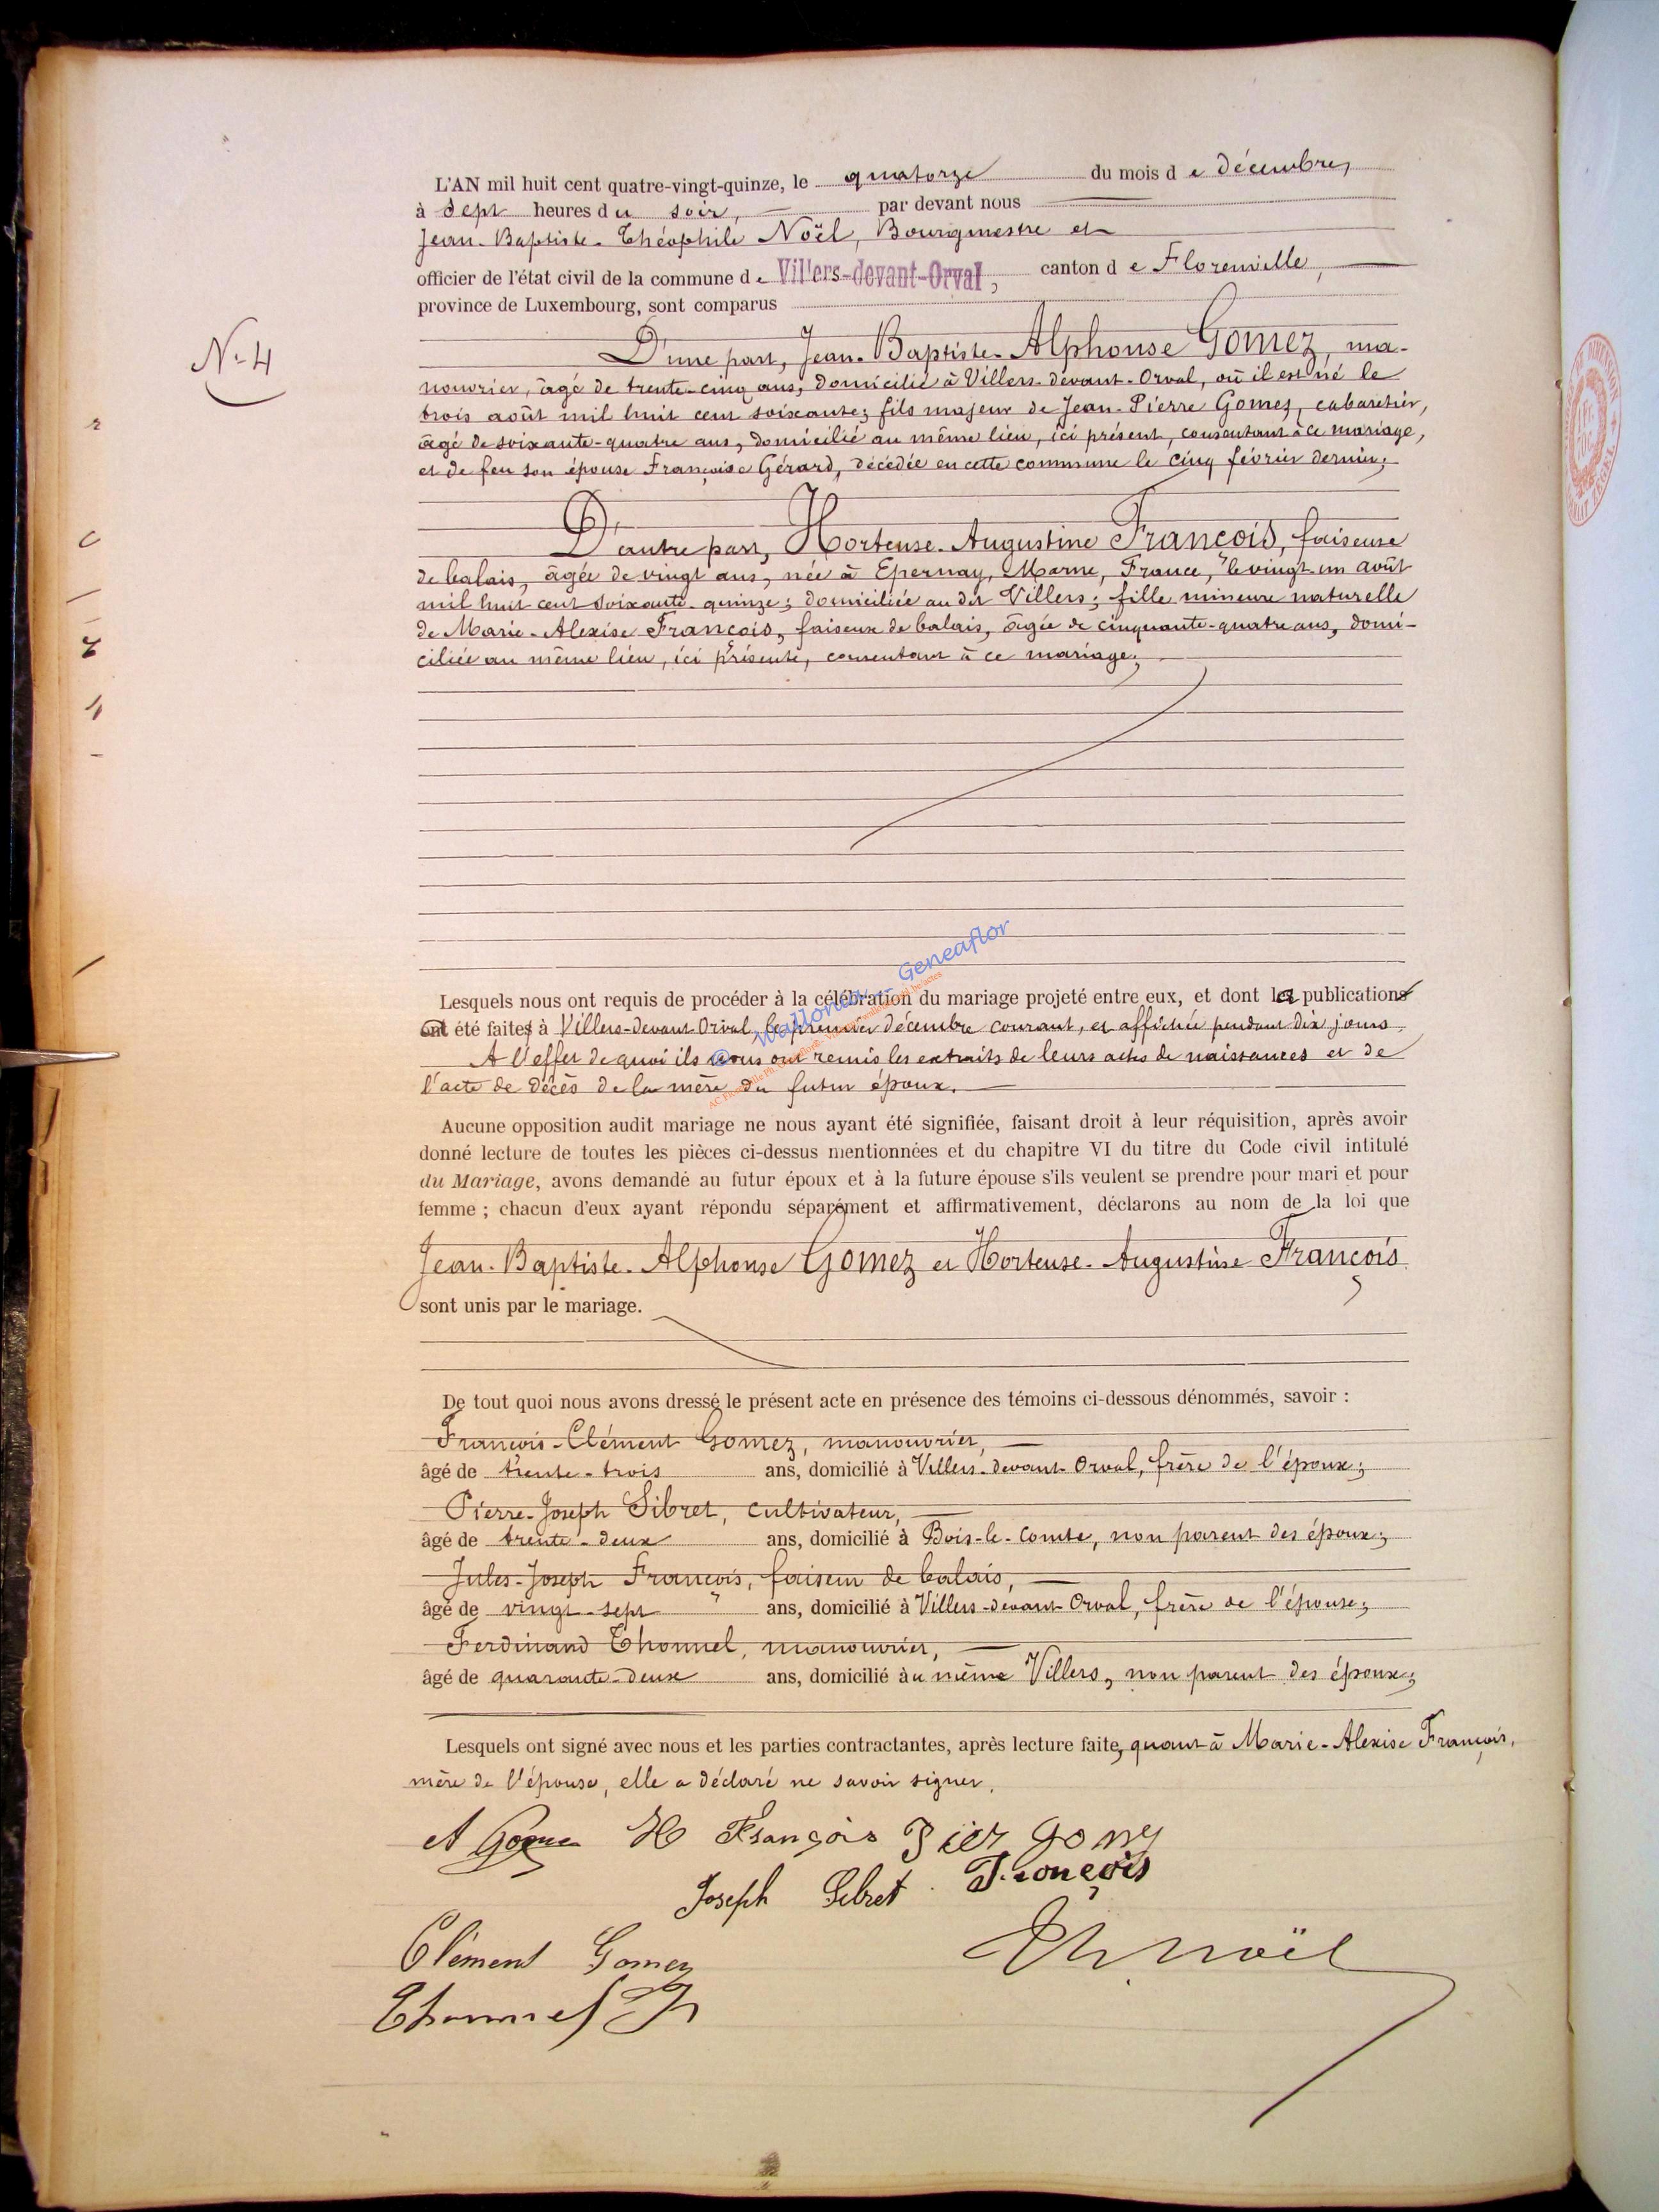 L'AN mil huit cent quatre-vingt-quinze, le quatorze du mois de décembre,
à sept heures du soir, par devant nous
Jean-Baptiste-Théophile Noël, Bourgmestre et
officier de l'état civil de la commune de Villers-devant-Orval, canton de Florenville,
province de Luxembourg, sont comparus
N° 4
D'une part, Jean-Baptiste-Alphonse Gomez, ma-
nouvrier, âgé de trente-cinq ans, domicilié à Villers-devant-Orval, où il est né le
trois août mil huit cent soixante; fils majeur de Jean-Pierre Gomez, cabaretier,
âgé de soixante-quatre ans, domicilié au même lieu, ici présent, consentant à ce mariage,
et de feu son épouse Françoise Gérard, décédée en cette commune le cinq février dernier;
D'autre part, Hortense-Augustine François, faiseuse
de balais, âgée de vingt ans, née à Epernay, Marne, France, le vingt-un août
mil huit cent soixante-quinze; domiciliée au dit Villers; fille mineure naturelle
de Marie-Alexise François, faiseuse de balais, âgée de cinquante-quatre ans, domi-
ciliée au même lieu, ici présente, consentant à ce mariage;
Lesquels nous ont requis de procéder à la célébration du mariage projeté entre eux, et dont la publication
a été faite à Villers-devant-Orval, le premier décembre courant, et affichée pendant dix jours.
A l'effet de quoi ils nous ont remis les extraits de leurs actes de naissances et de
l'acte de décès de la mère du futur époux.
© Wallonia - Geneaflor
Aucune opposition audit mariage ne nous ayant été signifiée, faisant droit à leur réquisition, après avoir
donné lecture de toutes les pièces ci-dessus mentionnées et du chapitre VI du titre du Code civil intitulé
du Mariage, avons demandé au futur époux et à la future épouse s'ils veulent se prendre pour mari et pour
femme ; chacun d'eux ayant répondu séparément et affirmativement, déclarons au nom de la loi que
Jean-Baptiste-Alphonse Gomez et Hortense-Augustine François
sont unis par le mariage.
De tout quoi nous avons dressé le présent acte en présence des témoins ci-dessous dénommés, savoir :
François-Clément Gomez, manouvrier,
âgé de trente-trois ans, domicilié à Villers-devant-Orval, frère de l'époux;
Pierre-Joseph Sibret, cultivateur,
âgé de trente-deux ans, domicilié à Bois-le-Comte, non parent des époux;
Jules-Joseph François, faiseur de balais,
âgé de vingt-sept ans, domicilié à Villers-devant-Orval, frère de l'épouse;
Ferdinand Thonnel, manouvrier,
âgé de quarante-deux ans, domicilié au même Villers, non parent des époux;
Lesquels ont signé avec nous et les parties contractantes, après lecture faite, quant à Marie-Alexise François,
mère de l'épouse, elle a déclaré ne savoir signer.
A Gomez H François Pier Gomez
Joseph Sibret François
Clément Gomez Th Noël
Thonnel F